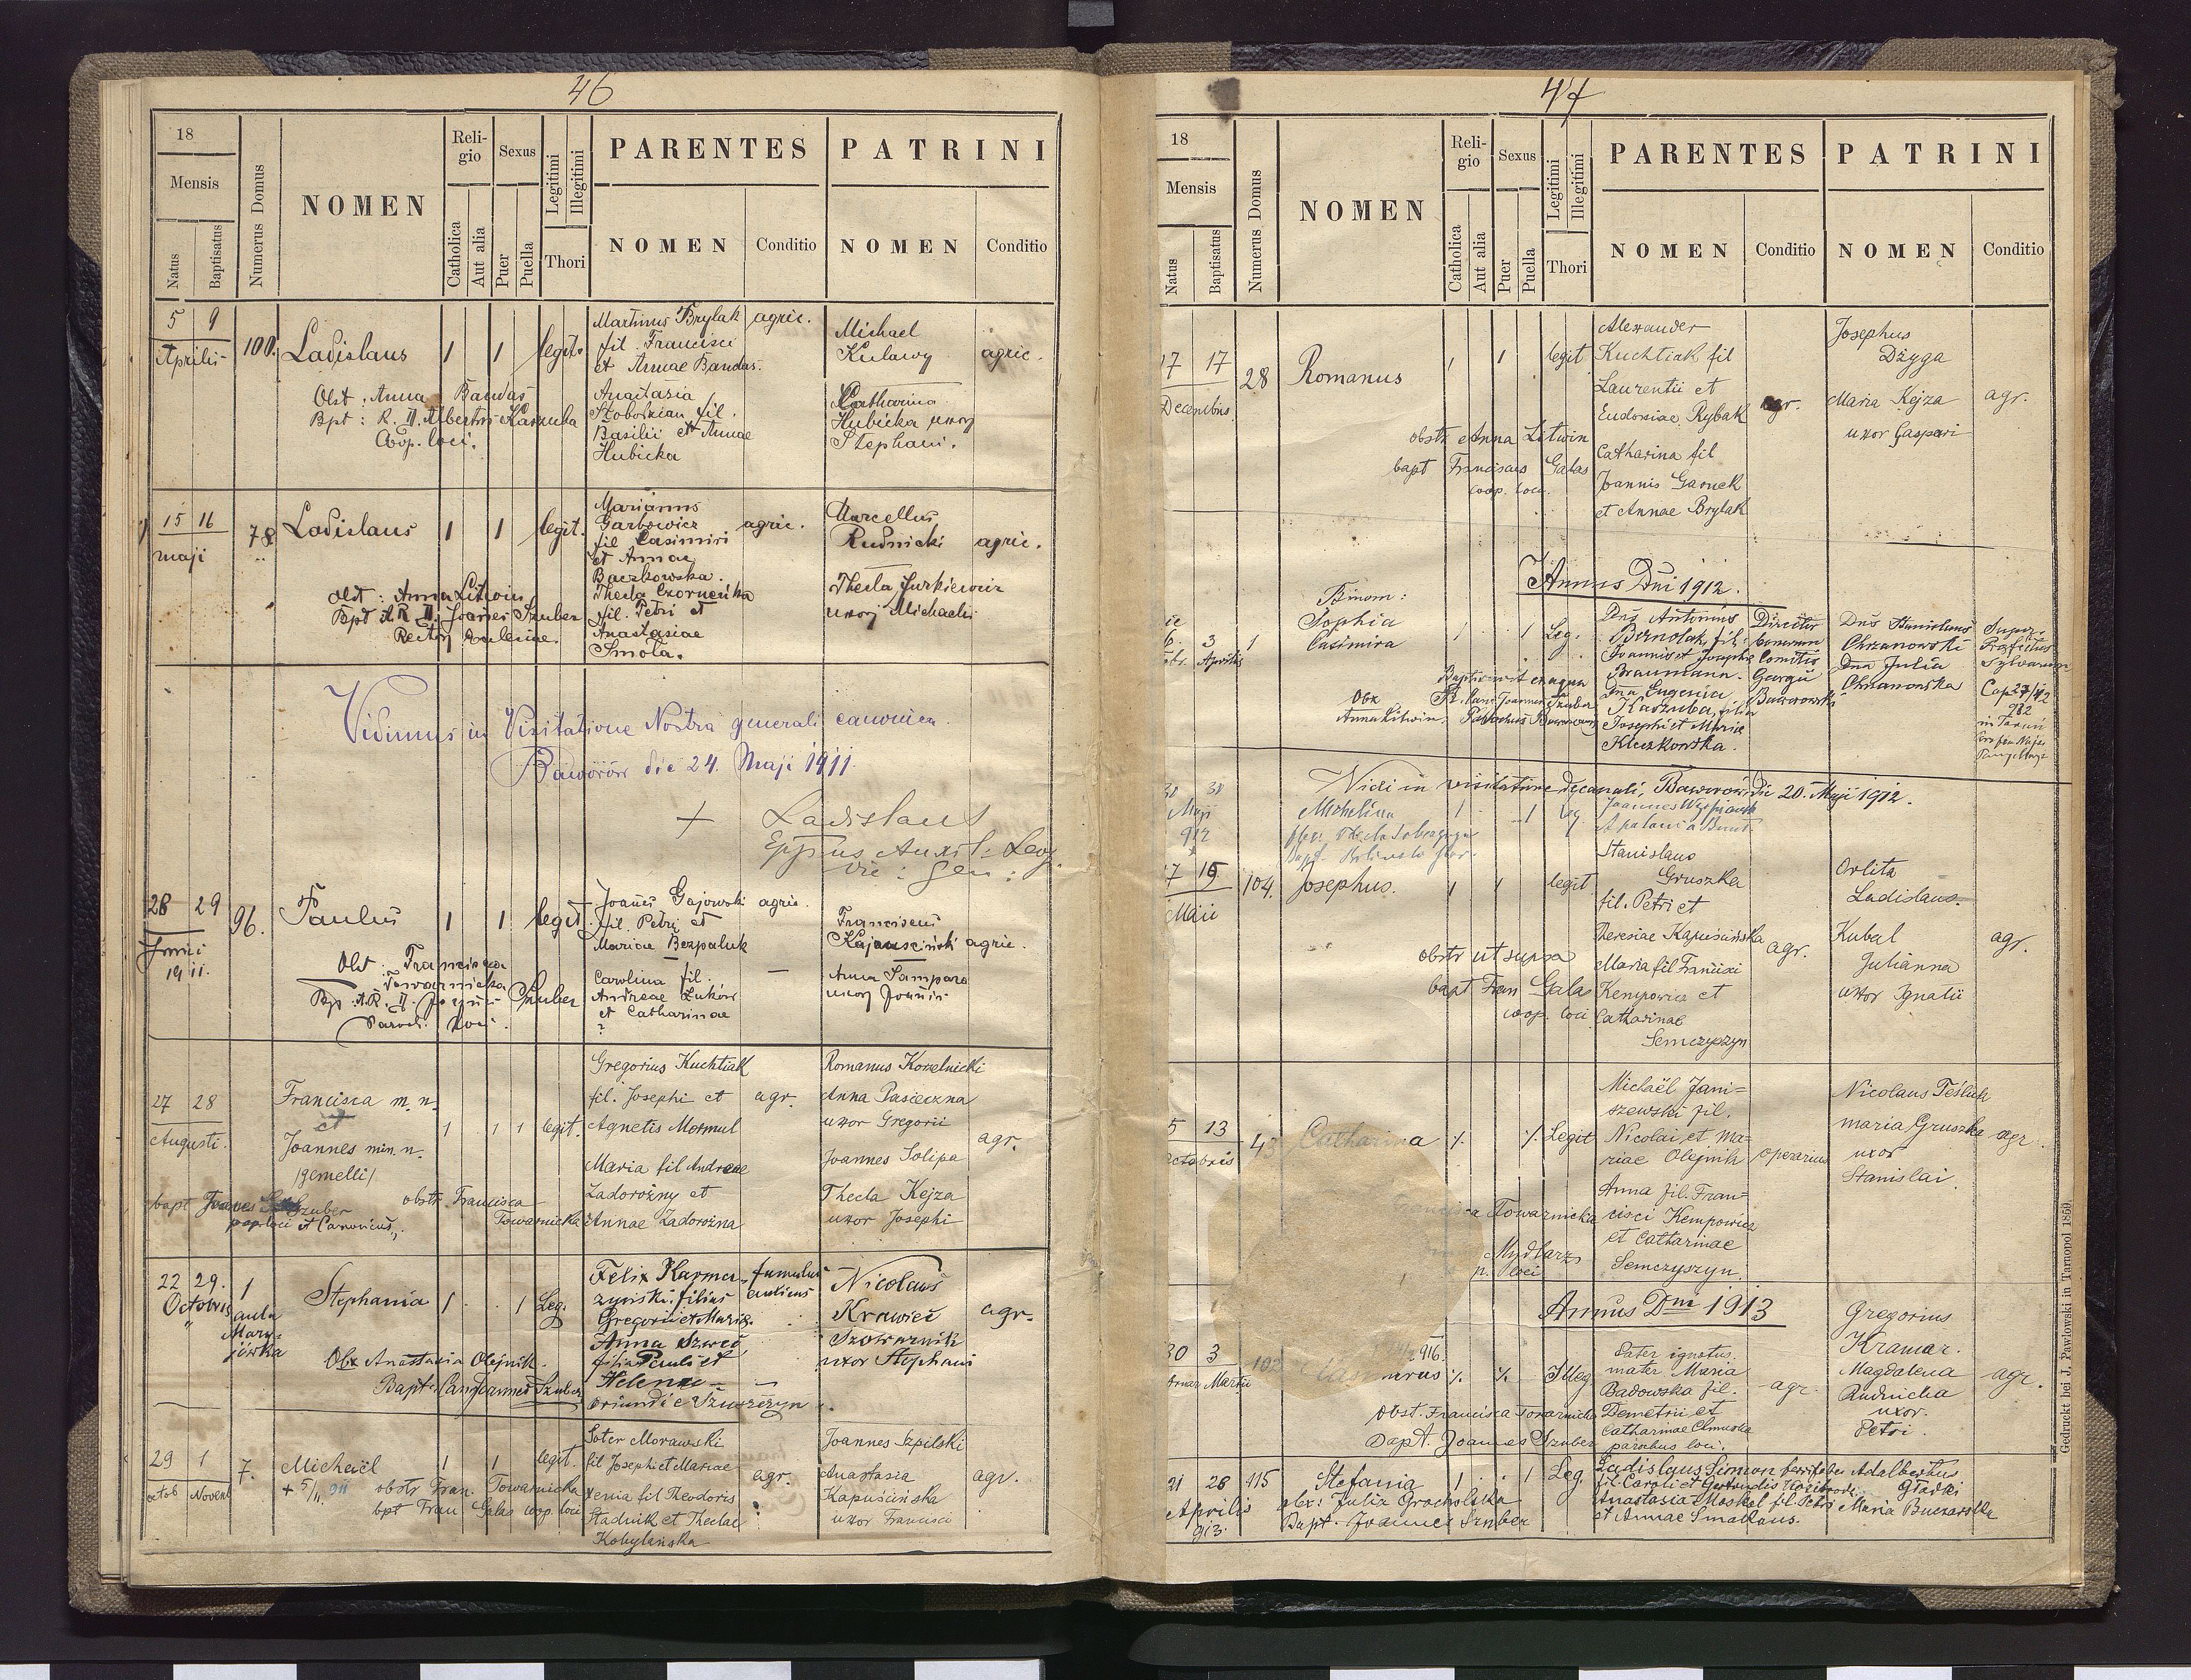 46
18
Mensis
Natus
Baptisatus
Numerus Domus
NOMEN
Religio
Catholica
Aut alia
Sexus
Puer
Puella
Legitimi
Illegitimi
Thori
PARENTES
NOMEN
Conditio
PATRINI
NOMEN
Conditio
5 9
Aprilis
100.
Ladislaus
1 1 legit.
Martinus Brylak
fil. Francisci
et Annae Bandas.
Anastasia
fil.
Basilii et Annae
Hubicka
agric.
Michael
Kulawy
Catharina
Hubicka uxor
Stephani.
agric.
Obst. Anna Bandas
Bpt: R. D. Albertus Kaszuba
Coop. loci.
15 16
maji
78
Ladislaus
1 1 legit.
Marianus
Garbowicz
fil Casimiri
et Annae
Baczkowska.
Thecla Czornenka
fil. Petri et
Anastasiae
Smola.
agric.
Marcellus
Rudnicki
Thecla Jurkiewicz
uxor Michaelis
agric.
Obst: Anna Litwin
Bpt A. R. D. Joannes Szuber
Rector Ecclesiae.
Vidimus in Visitatione Nostra generali canonica.
Baworów die 24. Maji 1911.
+ Ladislaus
Eppus Auxil: Leop.
Vic: Gen:
28 29
Junii
1911.
96.
Paulus
1 1 legit.
Joannes Gajowski
fil. Petri et
Mariae Bezpaluk
Carolina fil.
Andreae Zukow
et Catharinae
?
agric.
Franciscus
Kapuscinski
Anna Sampara
uxor Joannis
agric.
Obst. Francisca
Towarnicka
Bp. A. R. D. Joannes Szuber
Paroch. loci.
27 28
Augusti.
Francisca m. n.
et
Joannes min n.
/gemelli/
1 1 1 legit.
Gregorius Kuchtiak
fil. Josephi et
Agnetis Mormul
Maria fil Andreae
Zadorożny et
Annae Zadorożna
agr.
Romanus Kozelnicki
Anna Pasieczna
uxor Gregorii
Joannes Solipa
Thecla Kejza
uxor Josephi
agr.
bapt Joannes Szuber
par. loci et Canonicus.
obstr Francisca
Towarnicka
22 29.
Octobris
1
aula
Mary-
jówka
Stephania
1 1 Leg.
Felix Karma-
zyński filius
Gregorii et Mariae
Anna Szwec
filia Pauli et
Helenae
oriundi e
famulus
aulicus
Nicolaus
Krawieć
uxor Stephani
agr.
Obx Anastasia Olejnik.
Bapt. Can Joannes Szuber
29 1
octob Novem
7.
Michaël
+ 5/11 911
1 1 legit.
Soter Morawski
fil Josephi et Mariae
Xenia fil Theodoris
Stadnik et Theclae
Kobylańska
agr.
Joannes Szpilski
Anastasia
Kapuścińska
uxor Francisci
agr.
obstr Fran. Towarnicka
bpt Fran Galas coop. loci
47
18
Mensis
Natus
Baptisatus
Numerus Domus
NOMEN
Religio
Catholica
Aut alia
Sexus
Puer
Puella
Legitimi
Illegitimi
Thori
PARENTES
NOMEN
Conditio
PATRINI
NOMEN
Conditio
17 17
Decembris
28
Romanus
1 1 legit
Alexander
Kuchtiak fil
Laurentii et
Eudoxiae Rybak
Catharina fil
Joannis Garnek
et Annae Brylak
agr.
Josephus
Dżyga
Maria Kejza
uxor Gaspari
agr.
obstr Anna Litwin
bapt Franciscus Galas
coop. loci.
Annus Dni 1912.
3
Aprilis
1
Binom:
Sophia
Casimira
1 1 Leg.
Dnus Antonius
Bernolak, fil.
Joannis et Josephae
Braumann.
Dna Eugenia
Kaszuba, filia
Josephi et Mariae
Kluzkowska.
Director
bonorum
Comitis
Georgii
Baworowski
Dnus Stanislaus
Chrzanowski
Dna Julia
Chrzanowska
Praefectus
Sylvarum
Baptisavit ex aqua
Joannes Szuber
Obx
Anna Litwin.
Parochus Baworow
Vidi in visitatione decanali, Baworów die 20. Maji 1912.
31 31
Maji
912
Michelina
1 1 leg.
Joannes
15
Maii
104.
Josephus.
1 1 legit
Stanislaus
Gruszka
fil. Petri et
Theresiae Kapuścińska
Maria fil Francisci
Kempowicz et
Catharinae
Semczyszyn
agr.
Orlita
Ladislaus
Kubal
Julianna
uxor Ignatii
agr.
obstr ut supra
bapt Fran Galas
coop. loci
5 13
Octobris
43
Catharina
1. 1. Legit
Michaël Jani=
szewski fil.
Nicolai et Ma=
riae Olejnik
Anna fil. Fran=
cisci Kempowicz
et Catharinae
Semczyszyn.
operarius
Nicolaus Teśluk
maria Gruszka
uxor
Stanislai.
agr
Francisca Towarnicka
Mydlarz
p. loci
Annus Dni 1913
30 3
Martii
102
Casimirus
916.
1. 1. Illeg
Pater ignotus.
mater Maria
Badowska fil.
Demetrii et
Catharinae
agr.
Gregorius
Kramar.
Magdalena
Rudnicka
uxor.
Petri.
agr.
Obst. Francisca Towarnicka
Bapt. Joannes Szuber parochus loci.
21 26
Aprilis
913.
115
Stefania
1 1 Leg.
Ladislaus Simon
fil. Caroli et Gertrudis
Anastasia Moskal fil. Petri
et Annae
Adalbertus
Gładki
Maria
obx: Julia Grocholska
Bapt. Joannes Szuber
Gedruckt bei J. Pawlowski in Tarnopol 1859.